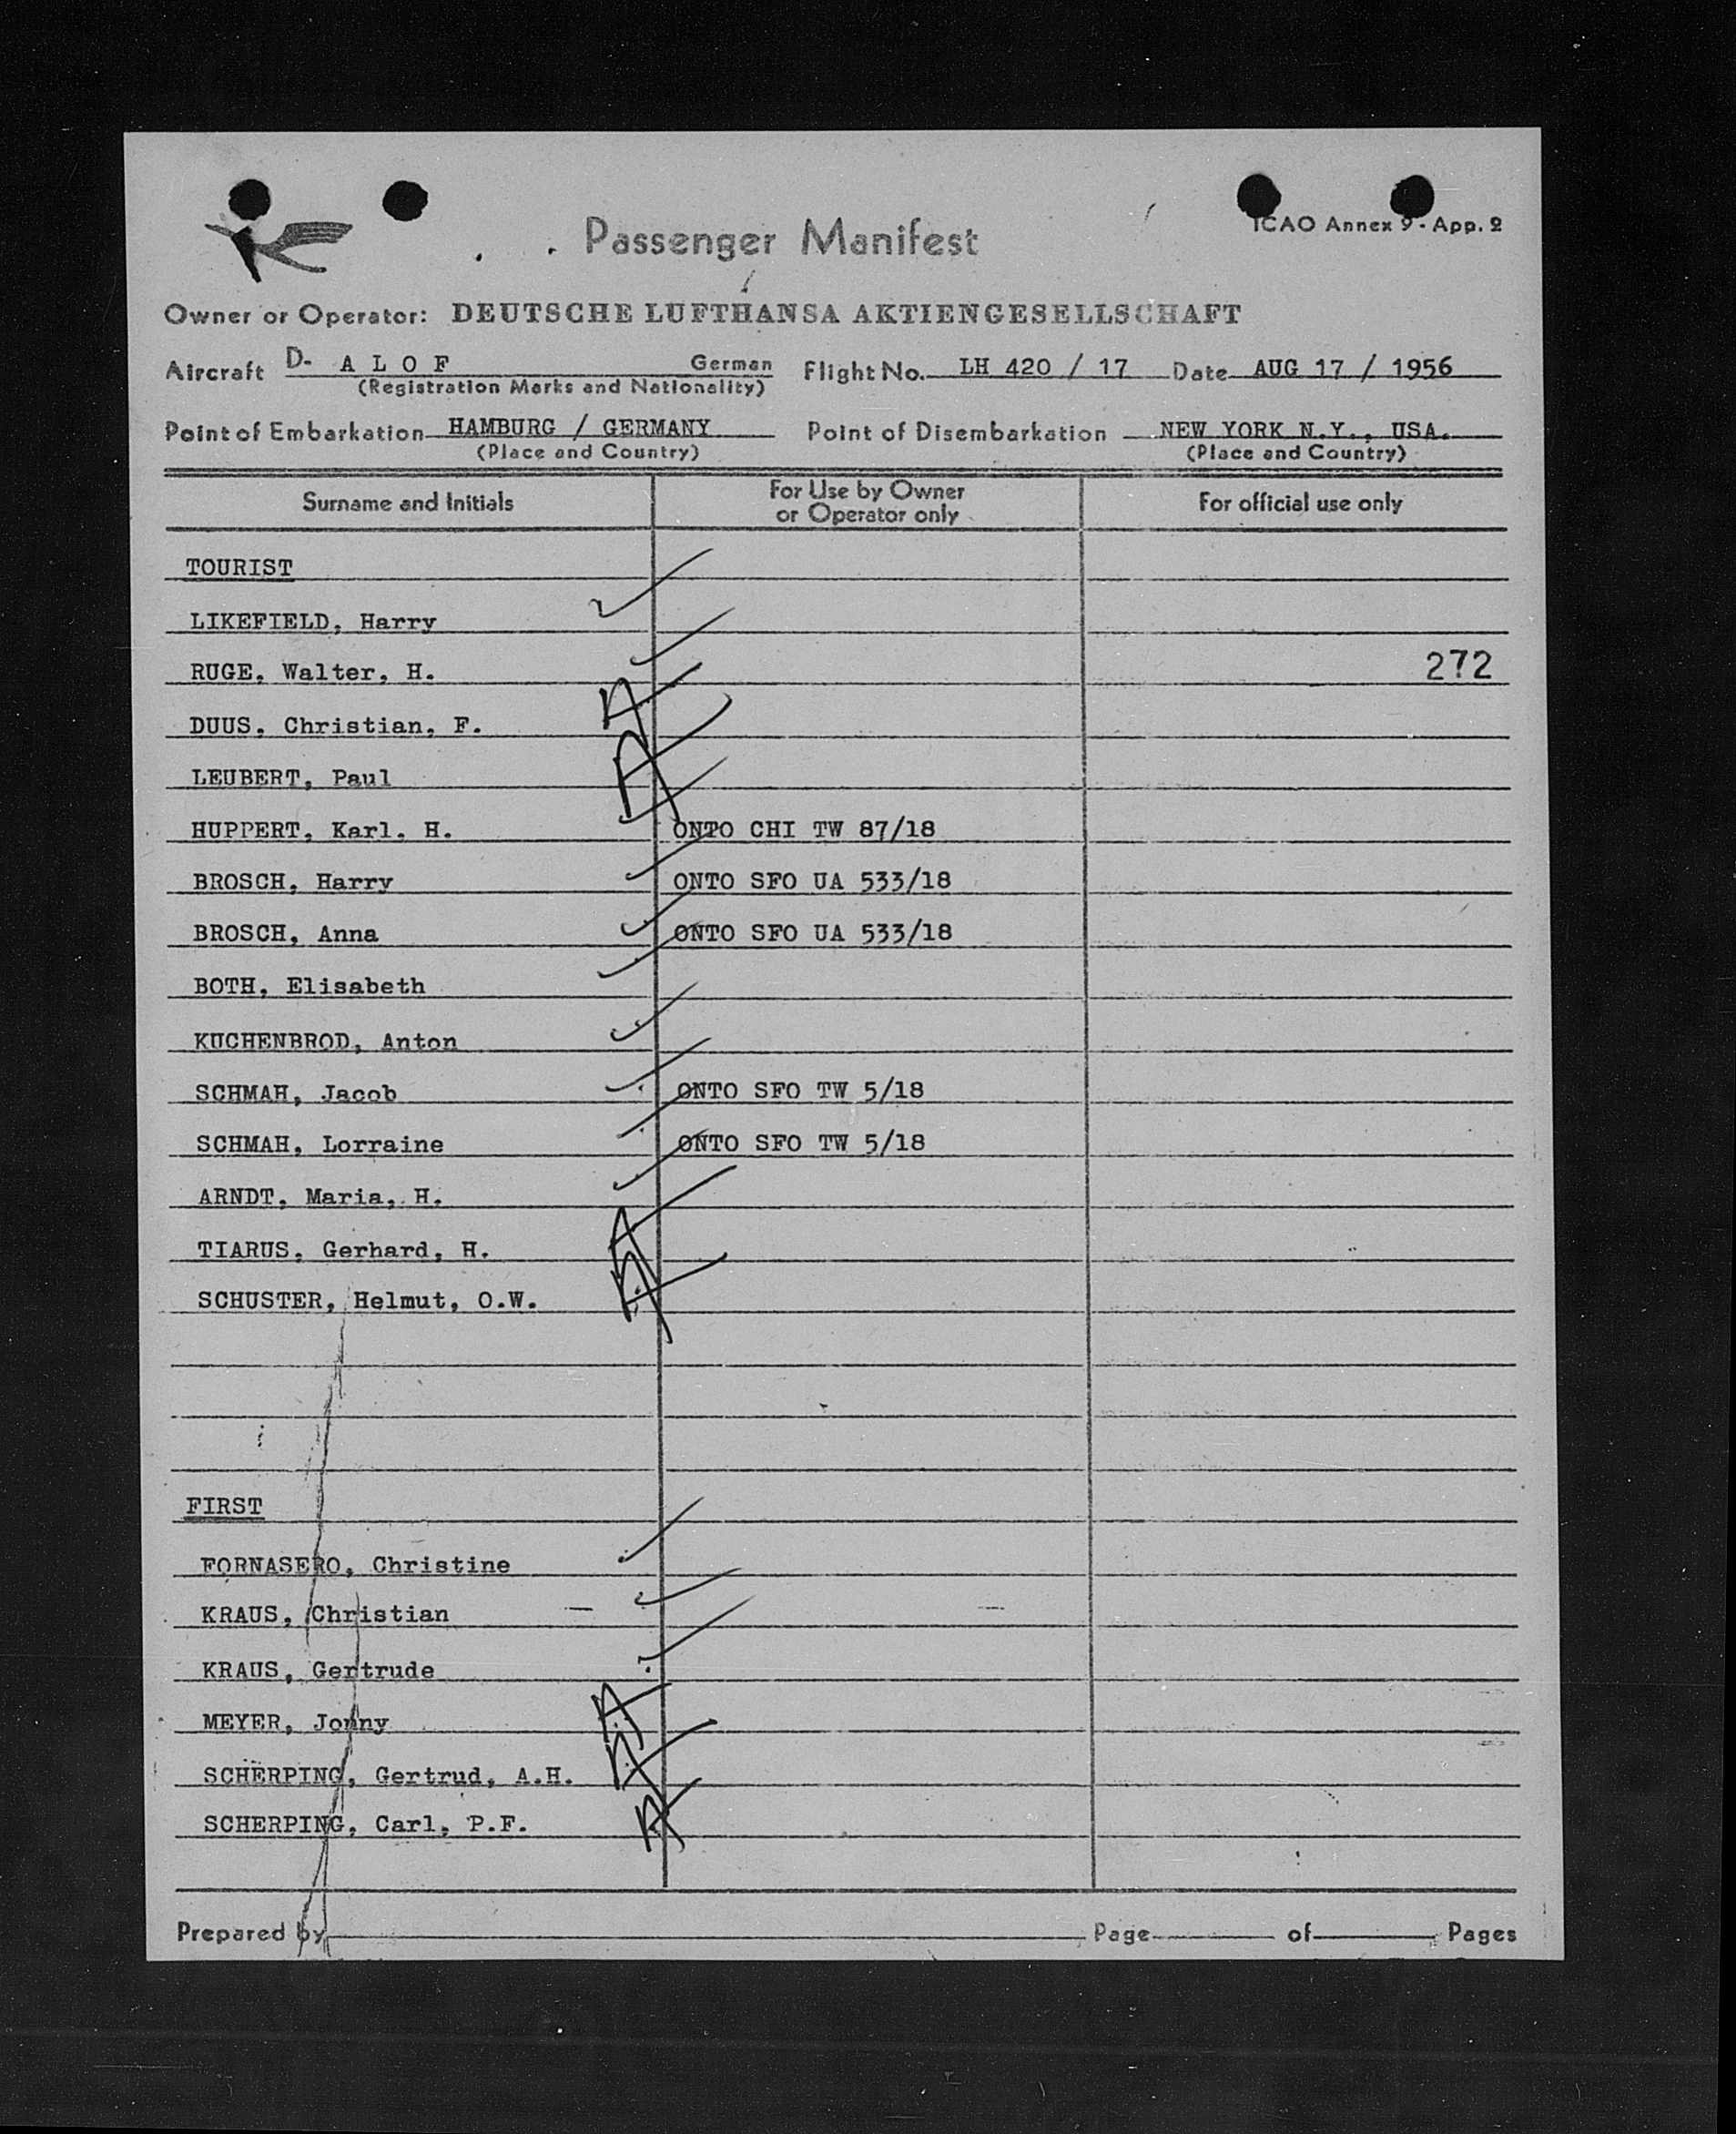 Passenger Manifest
ICAO Annex 9 - App. 2
Owner or Operator: DEUTSCHE LUFTHANSA AKTIENGESELLSCHAFT
Aircraft D- A L O F German Flight No. LH 420 / 17 Date AUG 17 / 1956
(Registration Marks and Nationality)
Point of Embarkation HAMBURG / GERMANY Point of Disembarkation NEW YORK N.Y., USA.
(Place and Country) (Place and Country)
Surname and Initials For Use by Owner or Operator only For official use only
TOURIST
LIKEFIELD, Harry
RUGE, Walter, H. 272
DUUS, Christian, F. A
LEUBERT, Paul A
HUPPERT, Karl, H. ONTO CHI TW 87/18
BROSCH, Harry ONTO SFO UA 533/18
BROSCH, Anna ONTO SFO UA 533/18
BOTH, Elisabeth
KUCHENBROD, Anton
SCHMAH, Jacob ONTO SFO TW 5/18
SCHMAH, Lorraine ONTO SFO TW 5/18
ARNDT, Maria, H.
TIARUS, Gerhard, H. A
SCHUSTER, Helmut, O.W. A
FIRST
FORNASERO, Christine
KRAUS, Christian
KRAUS, Gertrude
MEYER, Jonny A
SCHERPING, Gertrud, A.H. A
SCHERPING, Carl, P.F. A
Prepared by Page of Pages